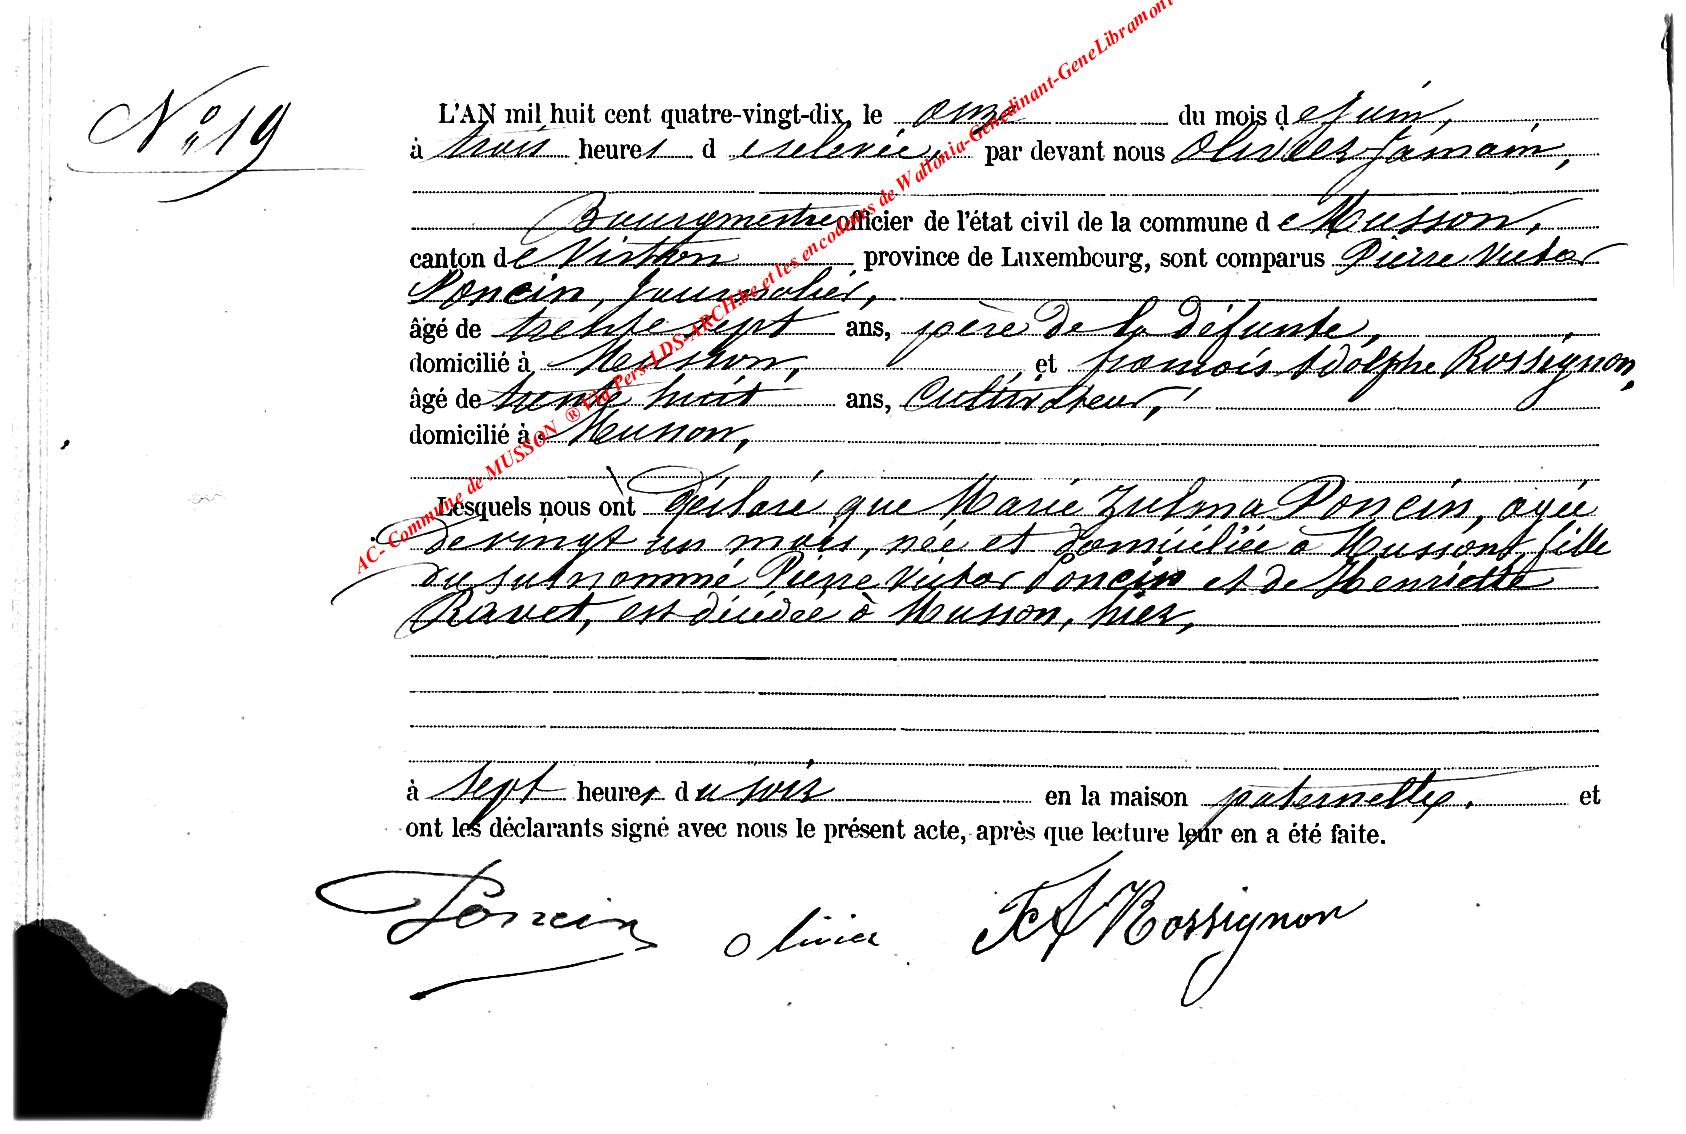 N° 19
L'AN mil huit cent quatre-vingt-dix, le onze du mois de Juin,
à trois heures de relevée, par devant nous Olivier Jamain,
Bourgmestre officier de l'état civil de la commune de Musson,
canton de Virton province de Luxembourg, sont comparus Pierre Victor
Poncin, Journalier,
âgé de trente sept ans, père de la défunte,
domicilié à Musson, et François Adolphe Rossignon,
âgé de trente huit ans, Cultivateur,
domicilié à Musson,
Lesquels nous ont déclaré que Marie Zulma Poncin, agée
de vingt un mois, née et domiciliée à Musson, fille
du susnommé Pierre Victor Poncin et de Henriette
Ravet, est décédée à Musson, hier,
à sept heures du soir en la maison paternelle. et
ont les déclarants signé avec nous le présent acte, après que lecture leur en a été faite.
Poncin Olivier FA Rossignon
AC- Commune de MUSSON ® Via Pers-LDS-ARCH.be et les encodeurs de Wallonia-Genedinant-GeneLibramont